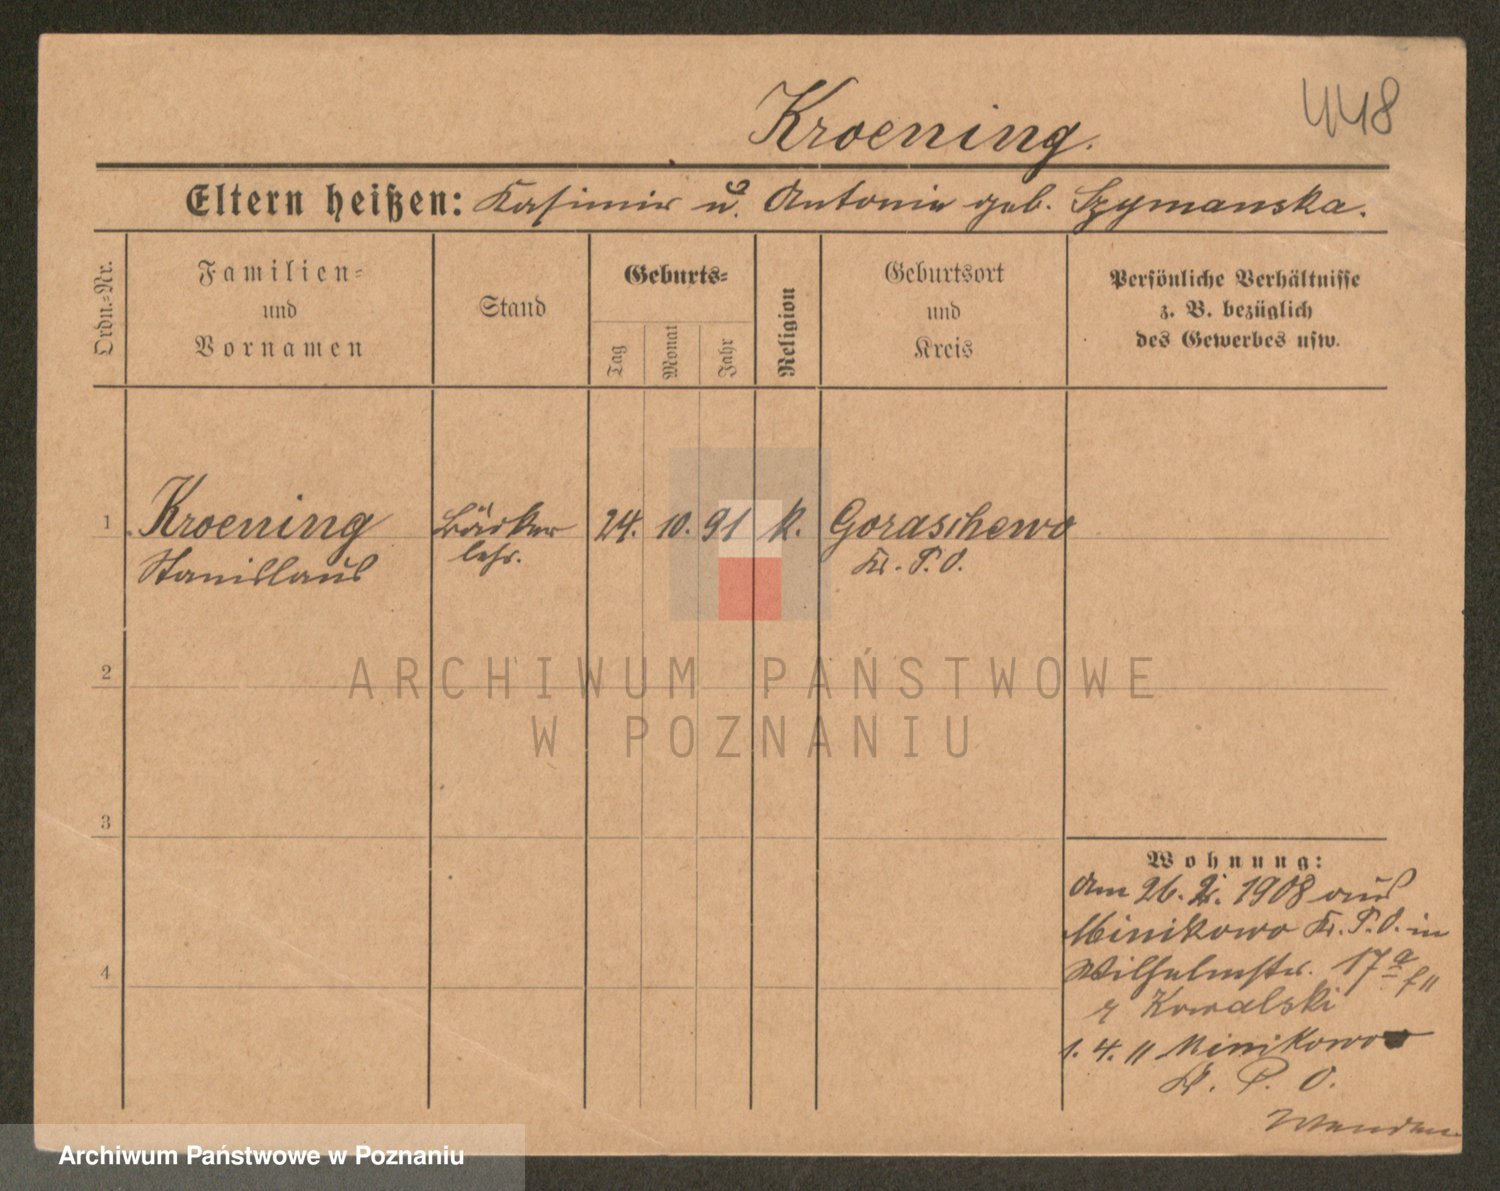 448
Kroening.
Eltern heißen: Kasimir u. Antonie geb. Szymanska.
Ordn.=Nr.
Familien=
und
Vornamen
Stand
Geburts=
Tag
Monat
Jahr
Religion
Geburtsort
und
Kreis
Persönliche Verhältnisse
z. B. bezüglich
des Gewerbes usw.
1 Kroening Bäcker 24. 10. 91 k. Goraschewo
Stanislaus lehr. Kr. P. O.
2
3
4
Wohnung:
Am 26. 2. 1908 aus
Minikowo Kr. P. O. in
Wilhelmstr. 17a
Kowalski
1. 4. 11 Minikowo
Kr. P. O.
Wenden
ARCHIWUM PAŃSTWOWE
W POZNANIU
Archiwum Państwowe w Poznaniu